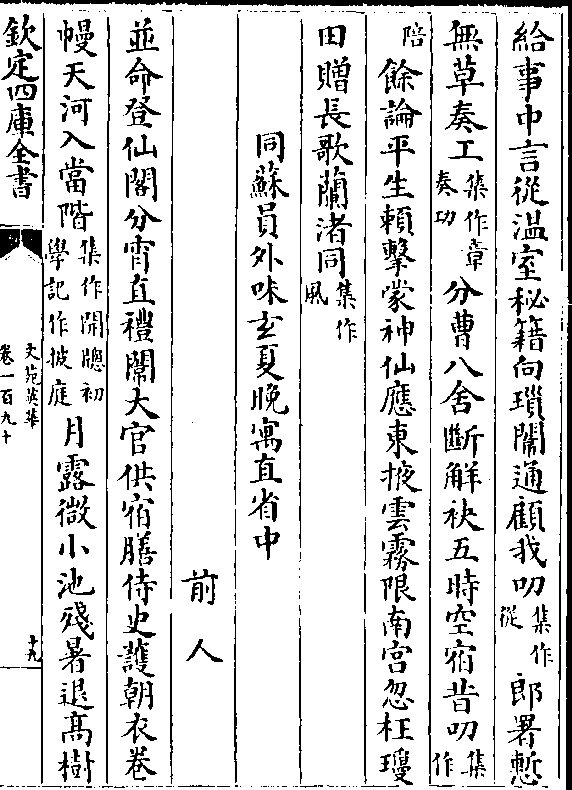 給事中言從温室秘籍向瑣闈通顧我叨集作從郎署慙
無草奏工集作章奏功分曹八舍斷解袂五時空宿昔叨集作
陪餘論平生賴擊蒙神仙應東掖雲霧限南宫忽枉瓊
田贈長歌蘭渚同集作風
同蘇員外味玄夏晩寓直省中
前人
並命登仙閣分宵直禮闈大官供宿膳侍史護朝衣卷
幔天河入當階集作開牎初學記作披庭月露微小池殘暑退髙樹
欽定四庫全書
文苑英華
卷一百九十
十九